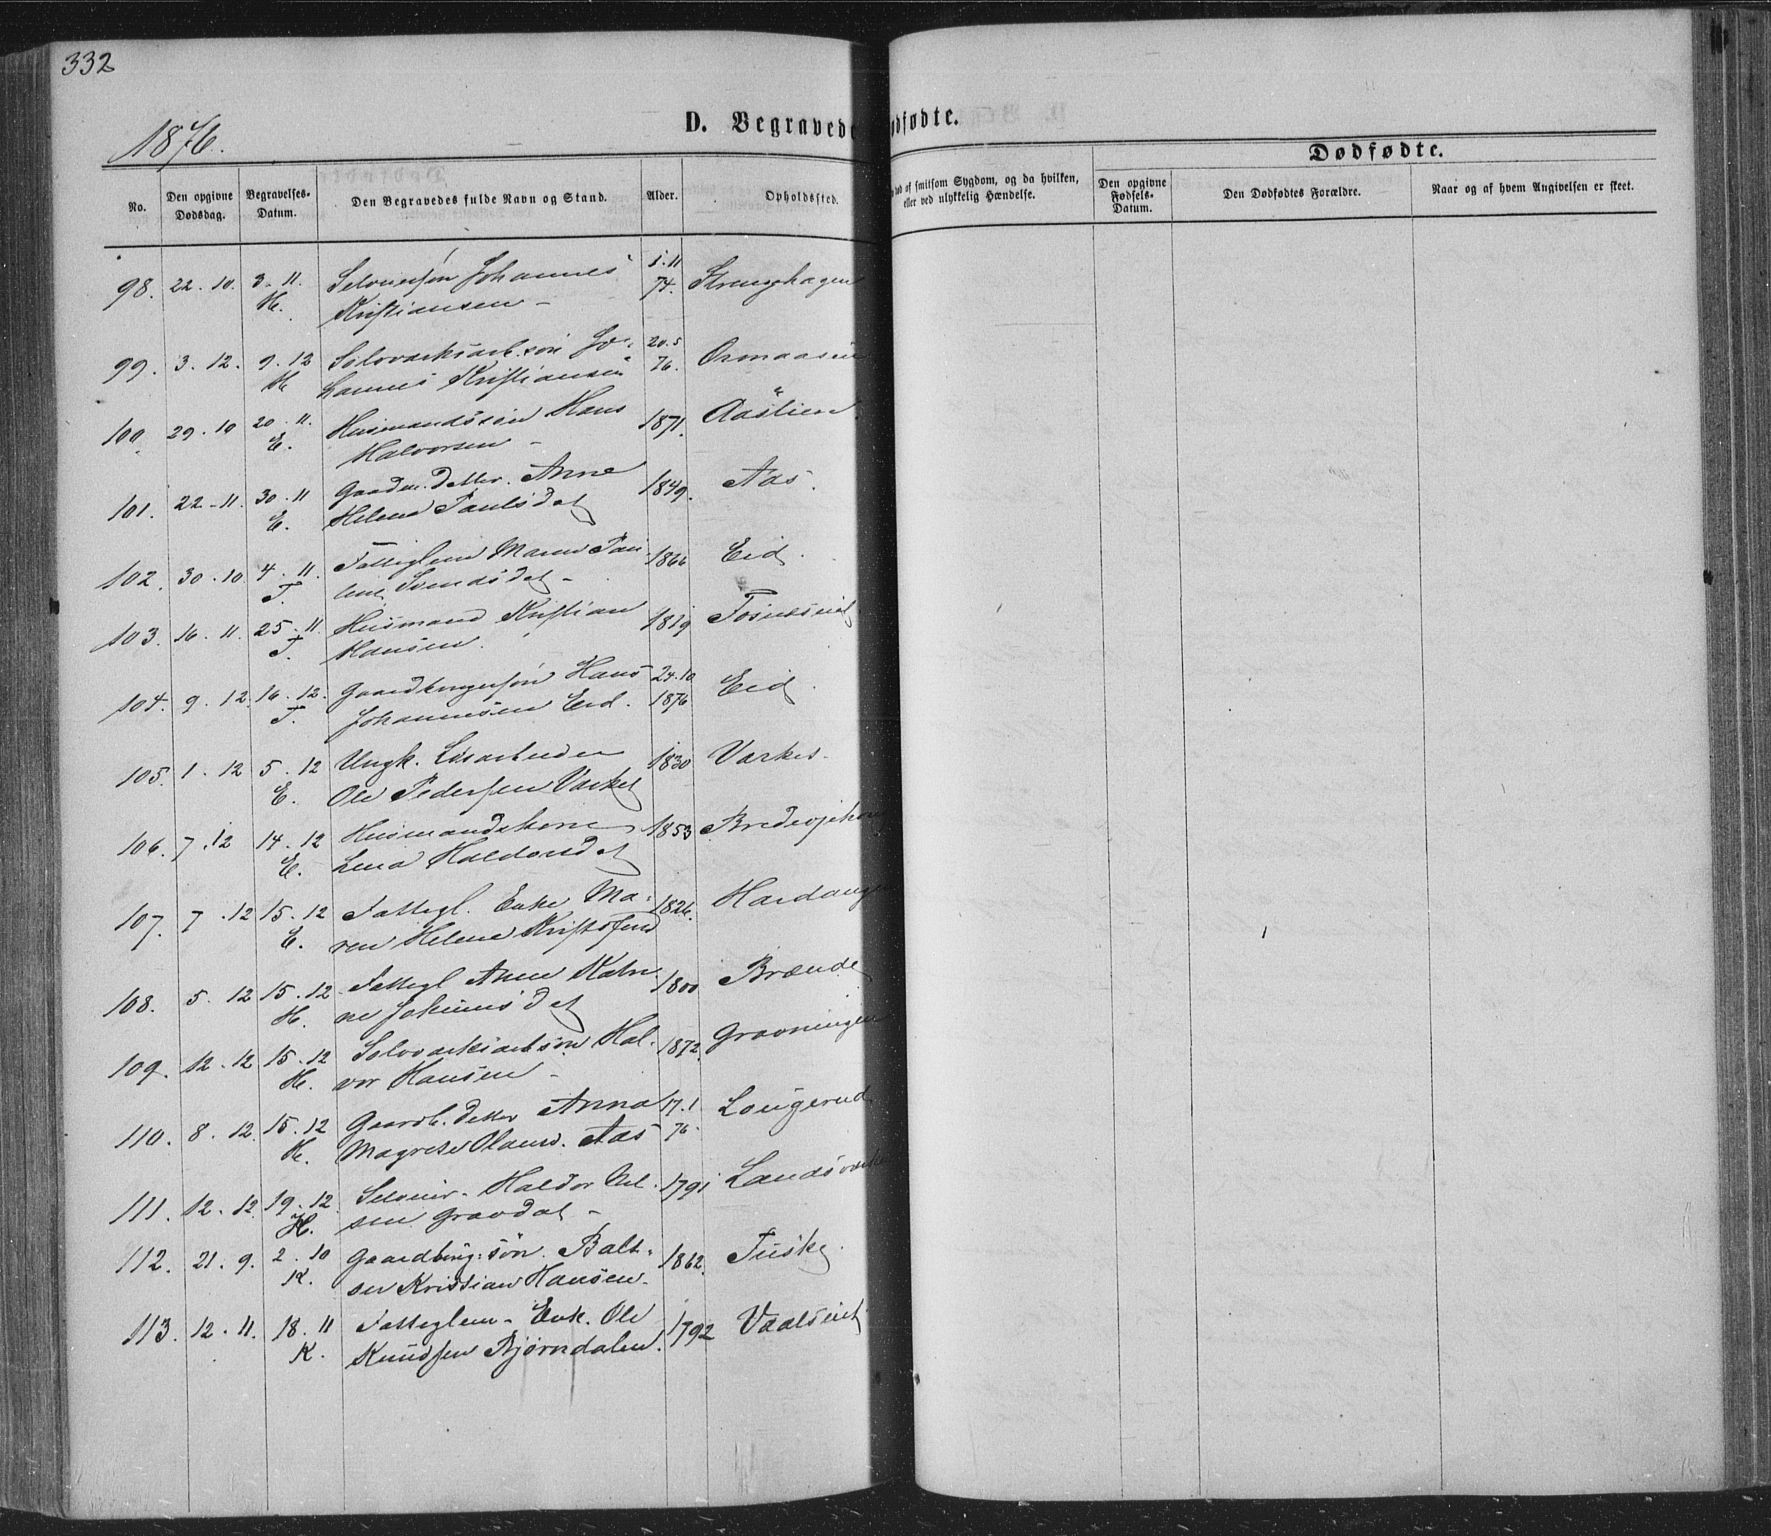 332
1876.
D. Begravede
ødfødte.
Dødfødte.
No.
Den opgivne Dødsdag.
Begravelses-Datum.
Den Begravedes fulde Navn og Stand.
Alder.
Opholdssted.
død af smitsom Sygdom, og da hvilken,
eller ved ulykkelig Hændelse.
Den opgivne Fødsels-Datum.
Den Dødfødtes Forældre.
Naar og af hvem Angivelsen er skeet.
98. 22.10. 3.11. Johannes 1.11 Strengehagen
H. Kristiansen - 74.
99. 3.12. 9.12 Sølvverksarb. søn Jo- 20.5
H. hannes Kristiansen 76.
100. 29.10 20.11. Husmandssøn Hans 1871. Aaslien.
E. Halvorsen -
101. 22.11. 30.11 Datter. Anne 1849. Aas.
E. Helene Paulsdat
102. 30.10 4.11. Fattiglem Maren Pau- 1866 Eid.
T. line Svendsdat -
103. 16.11. 25.11. Husmand Kristian 1819
T. Hansen.
104. 9.12. 16.12. Gaardbrugersøn Hans 24.10 Eid.
T. Johannesen Eid. 1876
105. 1.12 5.12 Ungk. 1830
E. Ole Pedersen
106. 7.12 14.12 Husmandskone 1853
E. Lena Haldorsdat
107. 7.12 15.12 Fattigl. Enke Ma- 1826. Hardanger
E. ren Helene Kristofersd
108. 5.12 15.12 Fattigl Anne Katri- 1800 Brænde
H. ne dat
109. 12.12 15.12 Sølvverksarb søn Hal- 1872. Gravningen
H. vor Hansen -
110. 8.12. 15.12 Gaardb. Datter Anna 17.1 Lougerud
H. Magrete Olausd. Aas 76.
111. 12.12. 19.12. Haldor Nil- 1791
H. sen Gravdal -
112. 21.9. 2.10 Gaardbrug: søn. Balt- 1862.
K. ser Kristian Hansen.
113. 12.11. 18.11 Fattiglem - Enk. Ole 1792
K. Knudsen Bjørndalen.